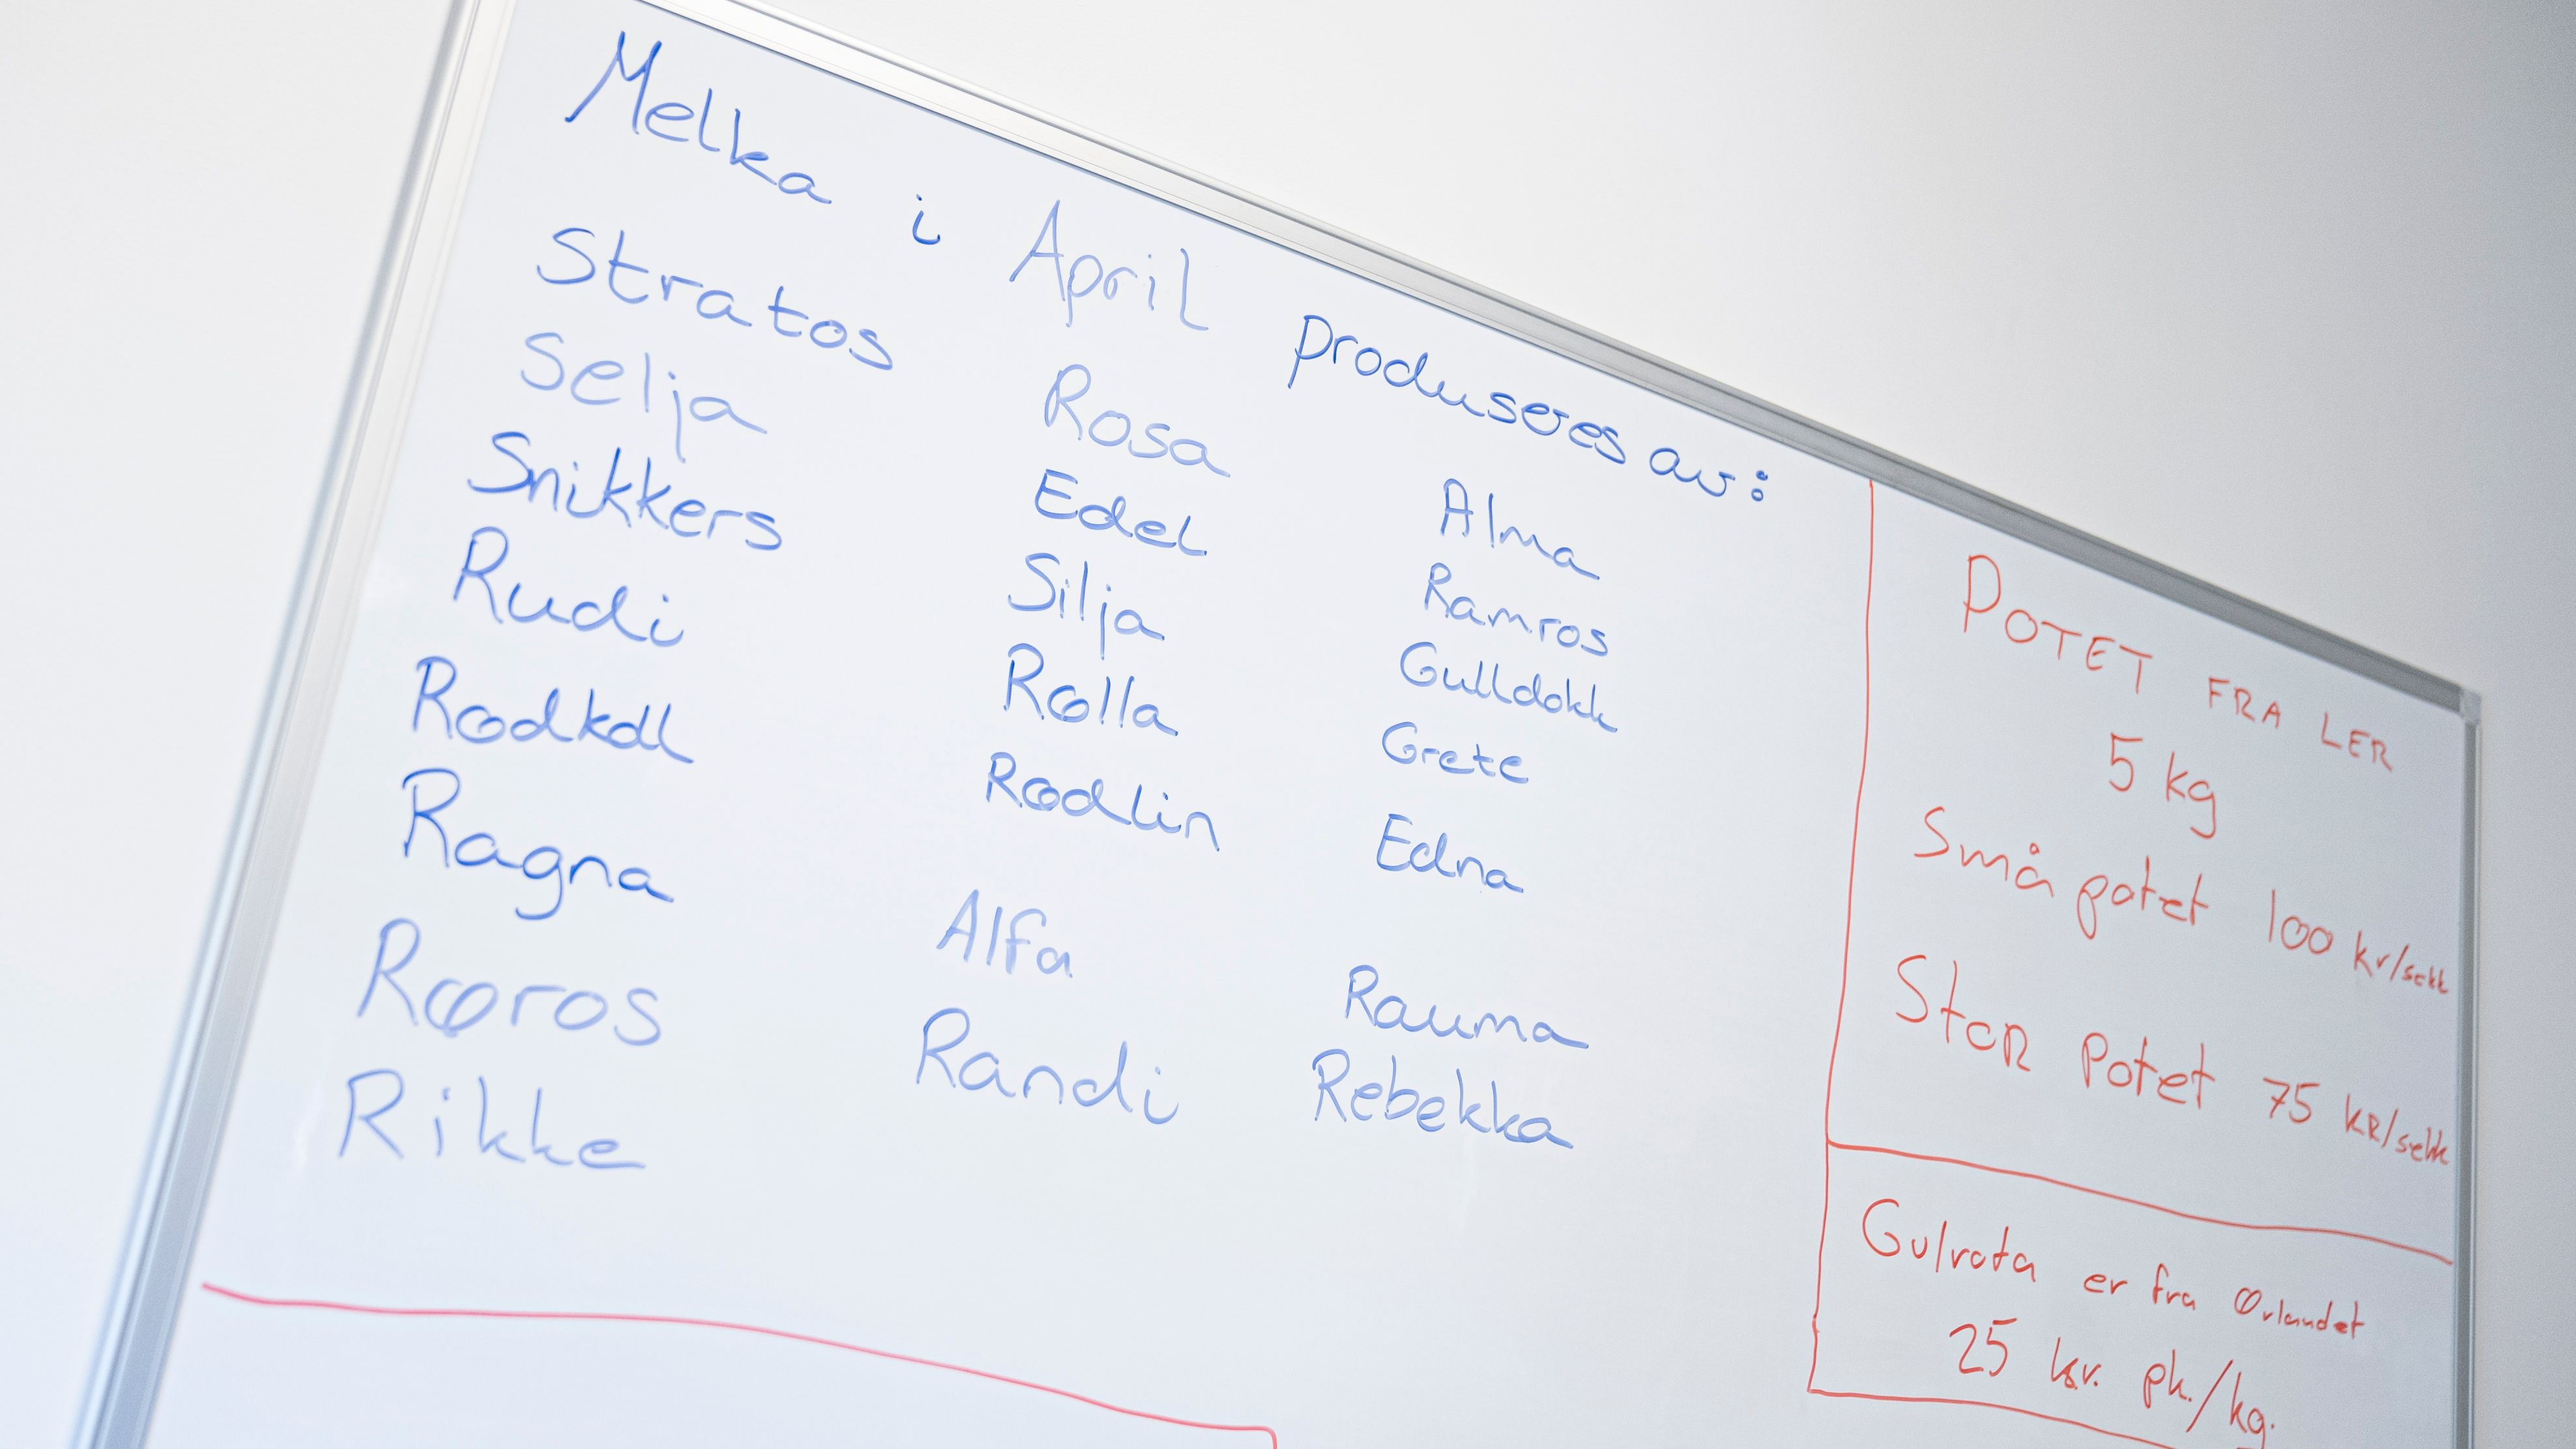 Melka i April produseres av:
Stratos Rosa Alma
Selja Edel Ramros
Snikkers Silja Gulldokk
Rudi Rølla Grete
Rødkoll Rødlin Edna
Ragna Alfa Rauma
Røros Randi Rebekka
Rikke
POTET FRA LER
5 kg
Små potet 100 kr/sekk
Stor Potet 75 KR/sekk
Gulrota er fra Ørlandet
25 kr. pk./kg.